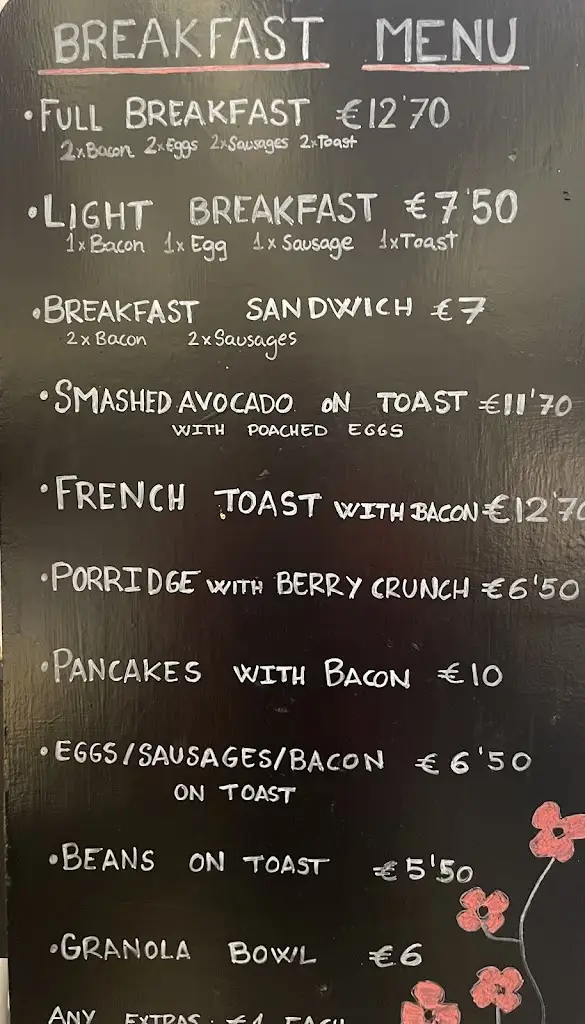 BREAKFAST MENU
•FULL BREAKFAST €12'70
2xBacon 2xEggs 2xSausages 2xToast
•LIGHT BREAKFAST €7'50
1xBacon 1x Egg 1x Sausage 1xToast
•BREAKFAST SANDWICH €7
2xBacon 2xSausages
•SMASHED AVOCADO ON TOAST €11'70
WITH POACHED EGGS
•FRENCH TOAST WITH BACON €12'70
•PORRIDGE WITH BERRY CRUNCH €6'50
•PANCAKES WITH BACON €10
•EGGS/SAUSAGES/BACON €6'50
ON TOAST
•BEANS ON TOAST €5'50
•GRANOLA BOWL €6
ANY EXTRAS: €1 EACH